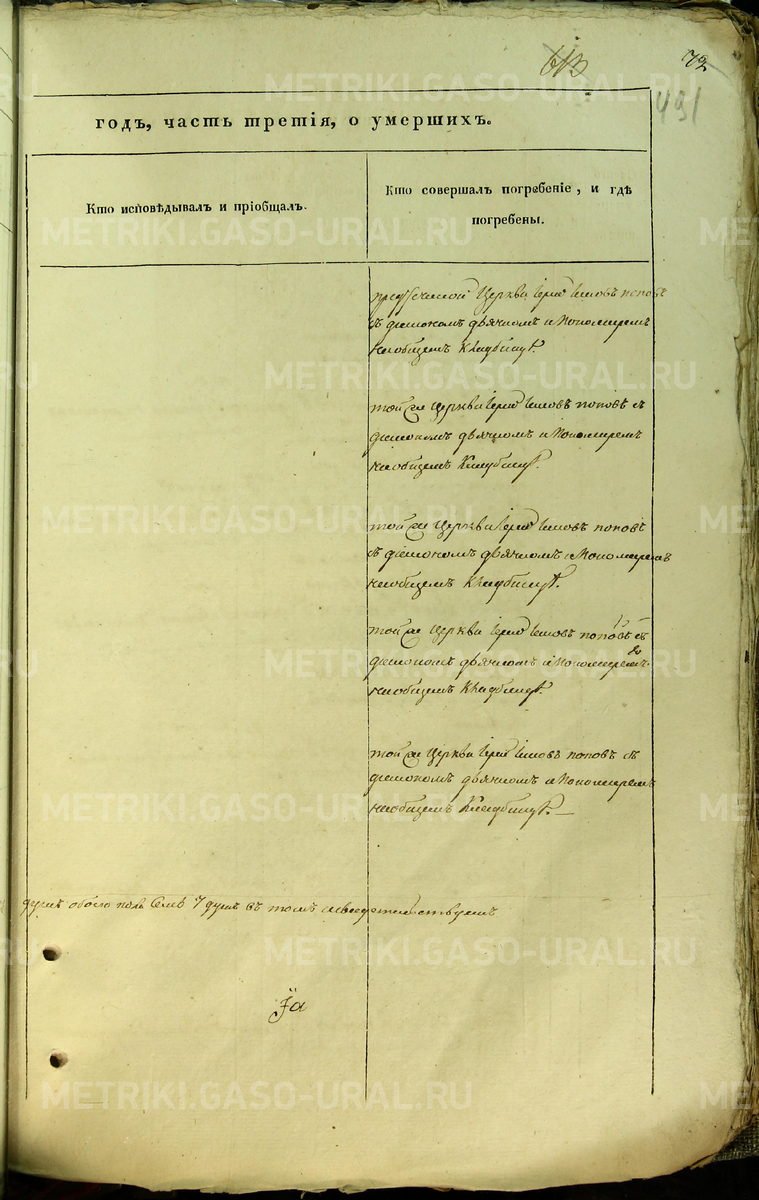 613
72
491
годъ, часть третія, о умершихъ.
Кто исповѣдывалъ и пріобщалъ.
Кто совершалъ погребеніе, и гдѣ
погребены.
Церкви Іерей Іаковъ поповъ
съ діакономъ дьячкомъ и Пономаремъ
на общемъ Кладбищѣ.
той же Церкви Іерей Іаковъ поповъ съ
діакономъ дьячкомъ и Пономаремъ
на общемъ Кладбищѣ.
той же Церкви Іерей Іаковъ поповъ
съ діакономъ дьячкомъ и Пономаремъ
на общемъ Кладбищѣ.
той же Церкви Іерей Іаковъ поповъ съ
діакономъ дьячкомъ и Пономаремъ
на общемъ Кладбищѣ.
той же Церкви Іерей Іаковъ поповъ съ
діакономъ дьячкомъ и Пономаремъ
на общемъ Кладбищѣ.
обоего пола 7 душъ въ томъ и свидетельствуемъ
METRIKI.GASO-URAL.RU